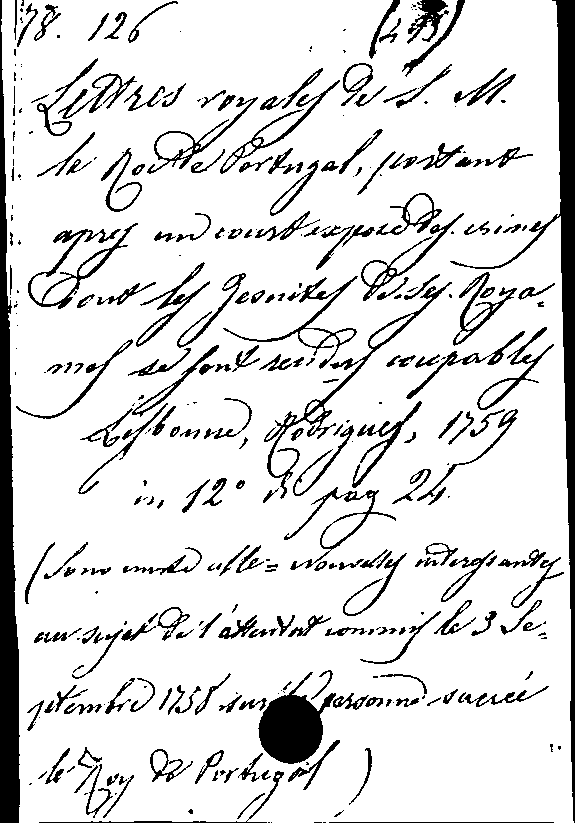 78. 126 (495)
Lettres royales de S. M.
le Roi de Portugal, portant
apres un court exposé des crimes
dont les Jesuites de ses Roya-
mes se sont rendus coupables
Lisbonne, Rodrigues, 1759
in 12° di pag 24.
(Sono unite alle = Nouvelles interessantes
au sujet de l'attentat commis le 3 Se-
ptembre 1758 sur la personne sacrée
le Roy de Portugal )